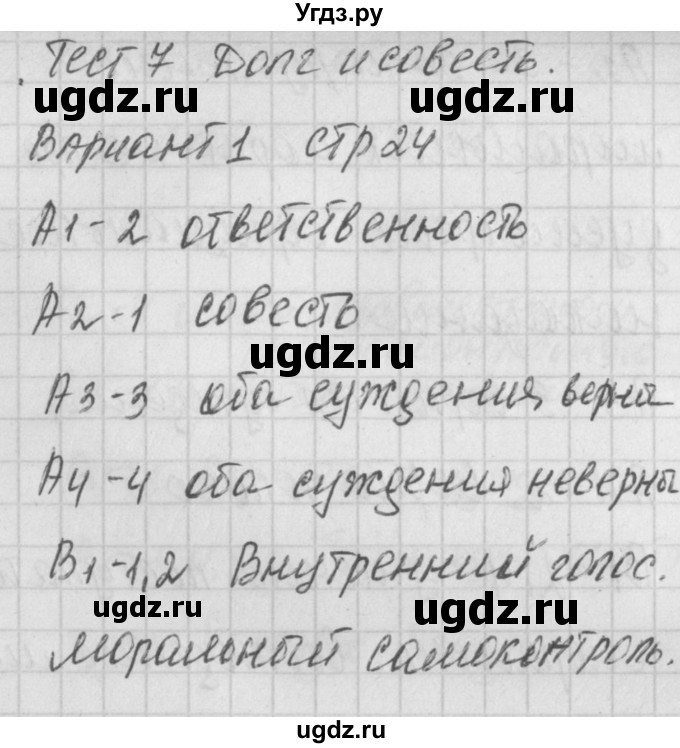 Угдз.ру
Тест 7 Долг и совесть.
ugdz.ru ugdz.ru
Вариант 1 стр 24
А1-2 ответственность
А2-1 совесть
ugdz.ru
А3-3 оба суждения верны
А4-4 оба суждения неверны
В1-1,2 Внутренний голос.
ugdz.ru ugdz.ru
моральный самоконтроль.
ugdz.ru